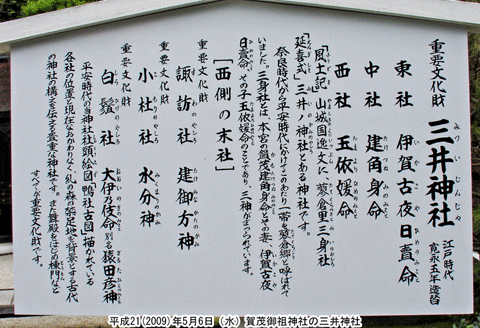 重要文化財 三井神社 江戸時代 寛永五年造替
みついじんじゃ
東社 伊賀古夜日賣命
中社 建角身命
西社 玉依媛命
「風土記」山城国逸文に、「蓼倉里三身社」
「延喜式」に「三井ノ神社」とある神社です。
奈良時代から平安時代にかけてこのあたり一帯を蓼倉郷と呼ばれて
いました。三身社とは、本宮の賀茂建角身命とその妻、伊賀古夜
日賣命、その子玉依媛命のことであり、三神がまつられています。
［西側の末社］
重要文化財
諏訪社 建御方神
重要文化財
小杜社 水分神
重要文化財
白鬚社 大伊乃伎命 別名 猿田彦神
平安時代の当神社社頭絵図「鴨社古図」に描かれている
各社の位置と現在もかわりなく、糺の森の祭祀地を背景とする古代
の神社の構えを伝える貴重な神社です。また舞殿をはじめ棟門など
すべてが重要文化財です。
平成21(2009)年5月6日（水）賀茂御祖神社の三井神社